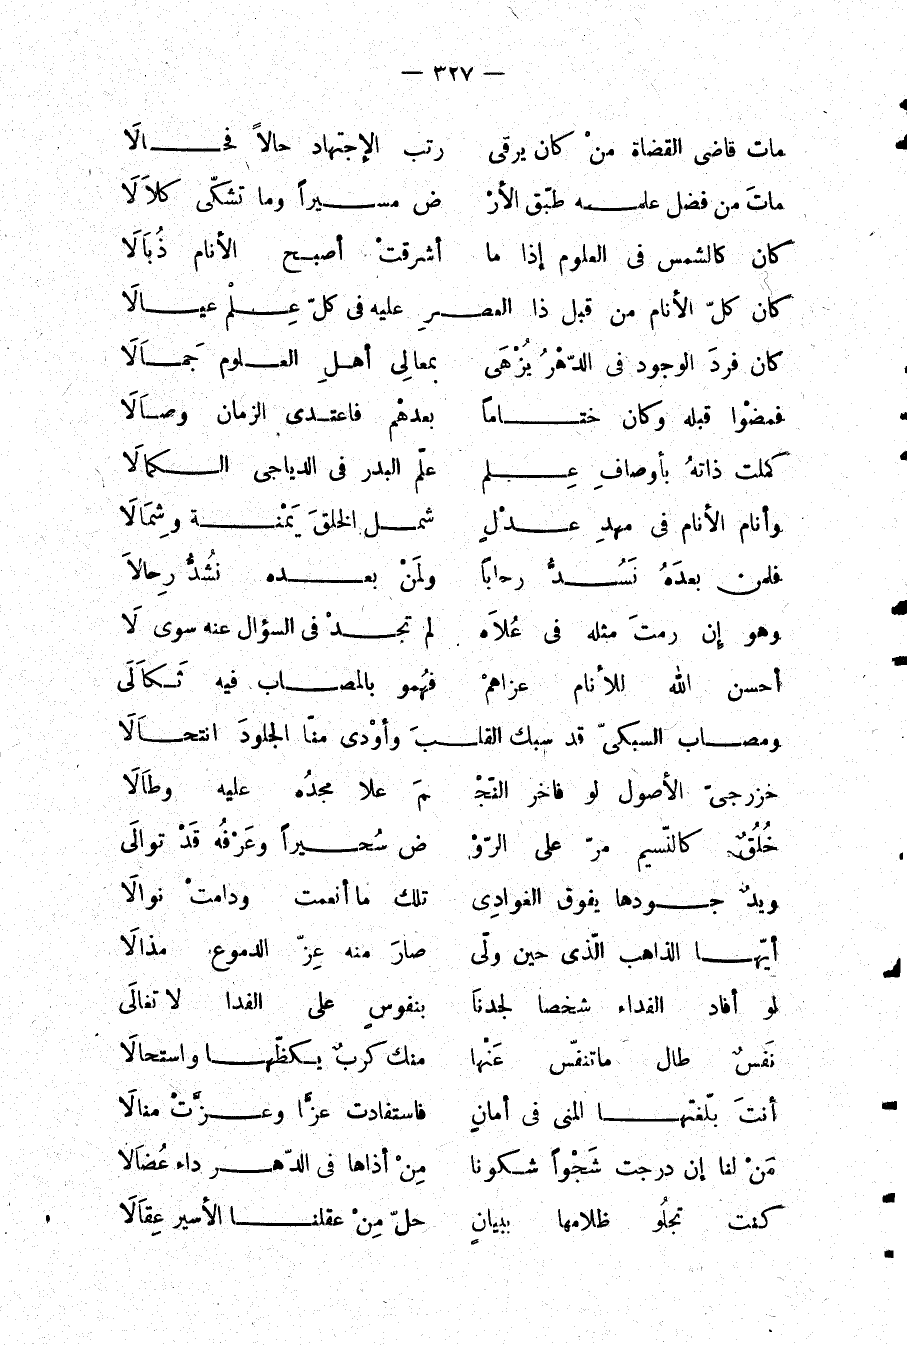 — ٣٢٧ —
مات قاضى القضاة منْ كان يرقى رتب الإجتهاد حالاً فحالَا
ماتَ من فضل علمه طبّق الأرْ ض مسيراً وما تشكّى كلاَلَا
كان كالشمس فى العلوم إذا ما أشرقتْ أصبح الأنام ذُبَالَا
كان كلّ الأنام من قبل ذا العصرِ عليه فى كلّ عِلْم عيالَا
كان فردَ الوجود فى الدّهْرُ يُزْهَى بمعالِى أهلِ العلوم جَمَالَا
فمضوْا قبله وكان ختاماً بعدهْم فاعتدى الزمان وصالَا
كملت ذاتهُ بأوصافِ عِلم علّم البدر فى الدياجى الكمالَا
وأنام الأنام فى مهدِ عدْلٍ شمل الخلقَ يَمْنة وشِمَالَا
فلمن بعدَهُ نَسُدُّ رحاباً ولَمَنْ بعده نُشدُّ رِحالاَ
وهو إن رمتَ مثله فى عُلاَه لم تجدْ فى السؤال عنه سوى لَا
أحسن الله للأنام عزاهمْ فهُمو بالمصاب فيه ثَكاَلَى
ومصاب السبكىّ قد سبك القلبَ وأوْدى منّا الجلودَ انتحاَلَا
خزرجىّ الأصول لو فاخر النّجْ مَ علا مجدُه عليه وطاَلَا
خُلُقٌ كالنّسيم مرّ على الرّوْ ض سُحيراً وعَرْفُه قَدْ توالَى
ويدٌ جودها يفوق الغوادِى تلك ما أنعمت ودامتْ نوالَا
أيّها الذاهب الّذى حين ولّى صارَ منه عِزّ الدموع مذالَا
لو أفاد الفداء شخصا لجدنَا بنفوسٍ على الفدا لا تغالَى
نَفسٌ طال ماتنفّس عَنْها منك كربٌ يكظّها واستحالَا
أنتَ بلّغتّها المنى فى أمانٍ فاستفادت عزًّا وعزَّتْ منالَا
مَنْ لنا إن درجت شَجْواً شكونا مِنْ أذاها فى الدّهر داء عُضاَلَا
كنت تجلُو ظلامها ببيانٍ حلّ مِنْ عقلنا الأسير عِقاَلَا